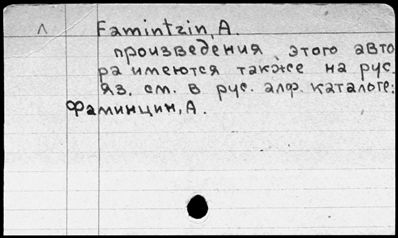 ^ Famintzin, A.
произведения этого авто
ра имеются также на рус.
яз. см. в рус. алф. каталоге:
Фаминцин, А.